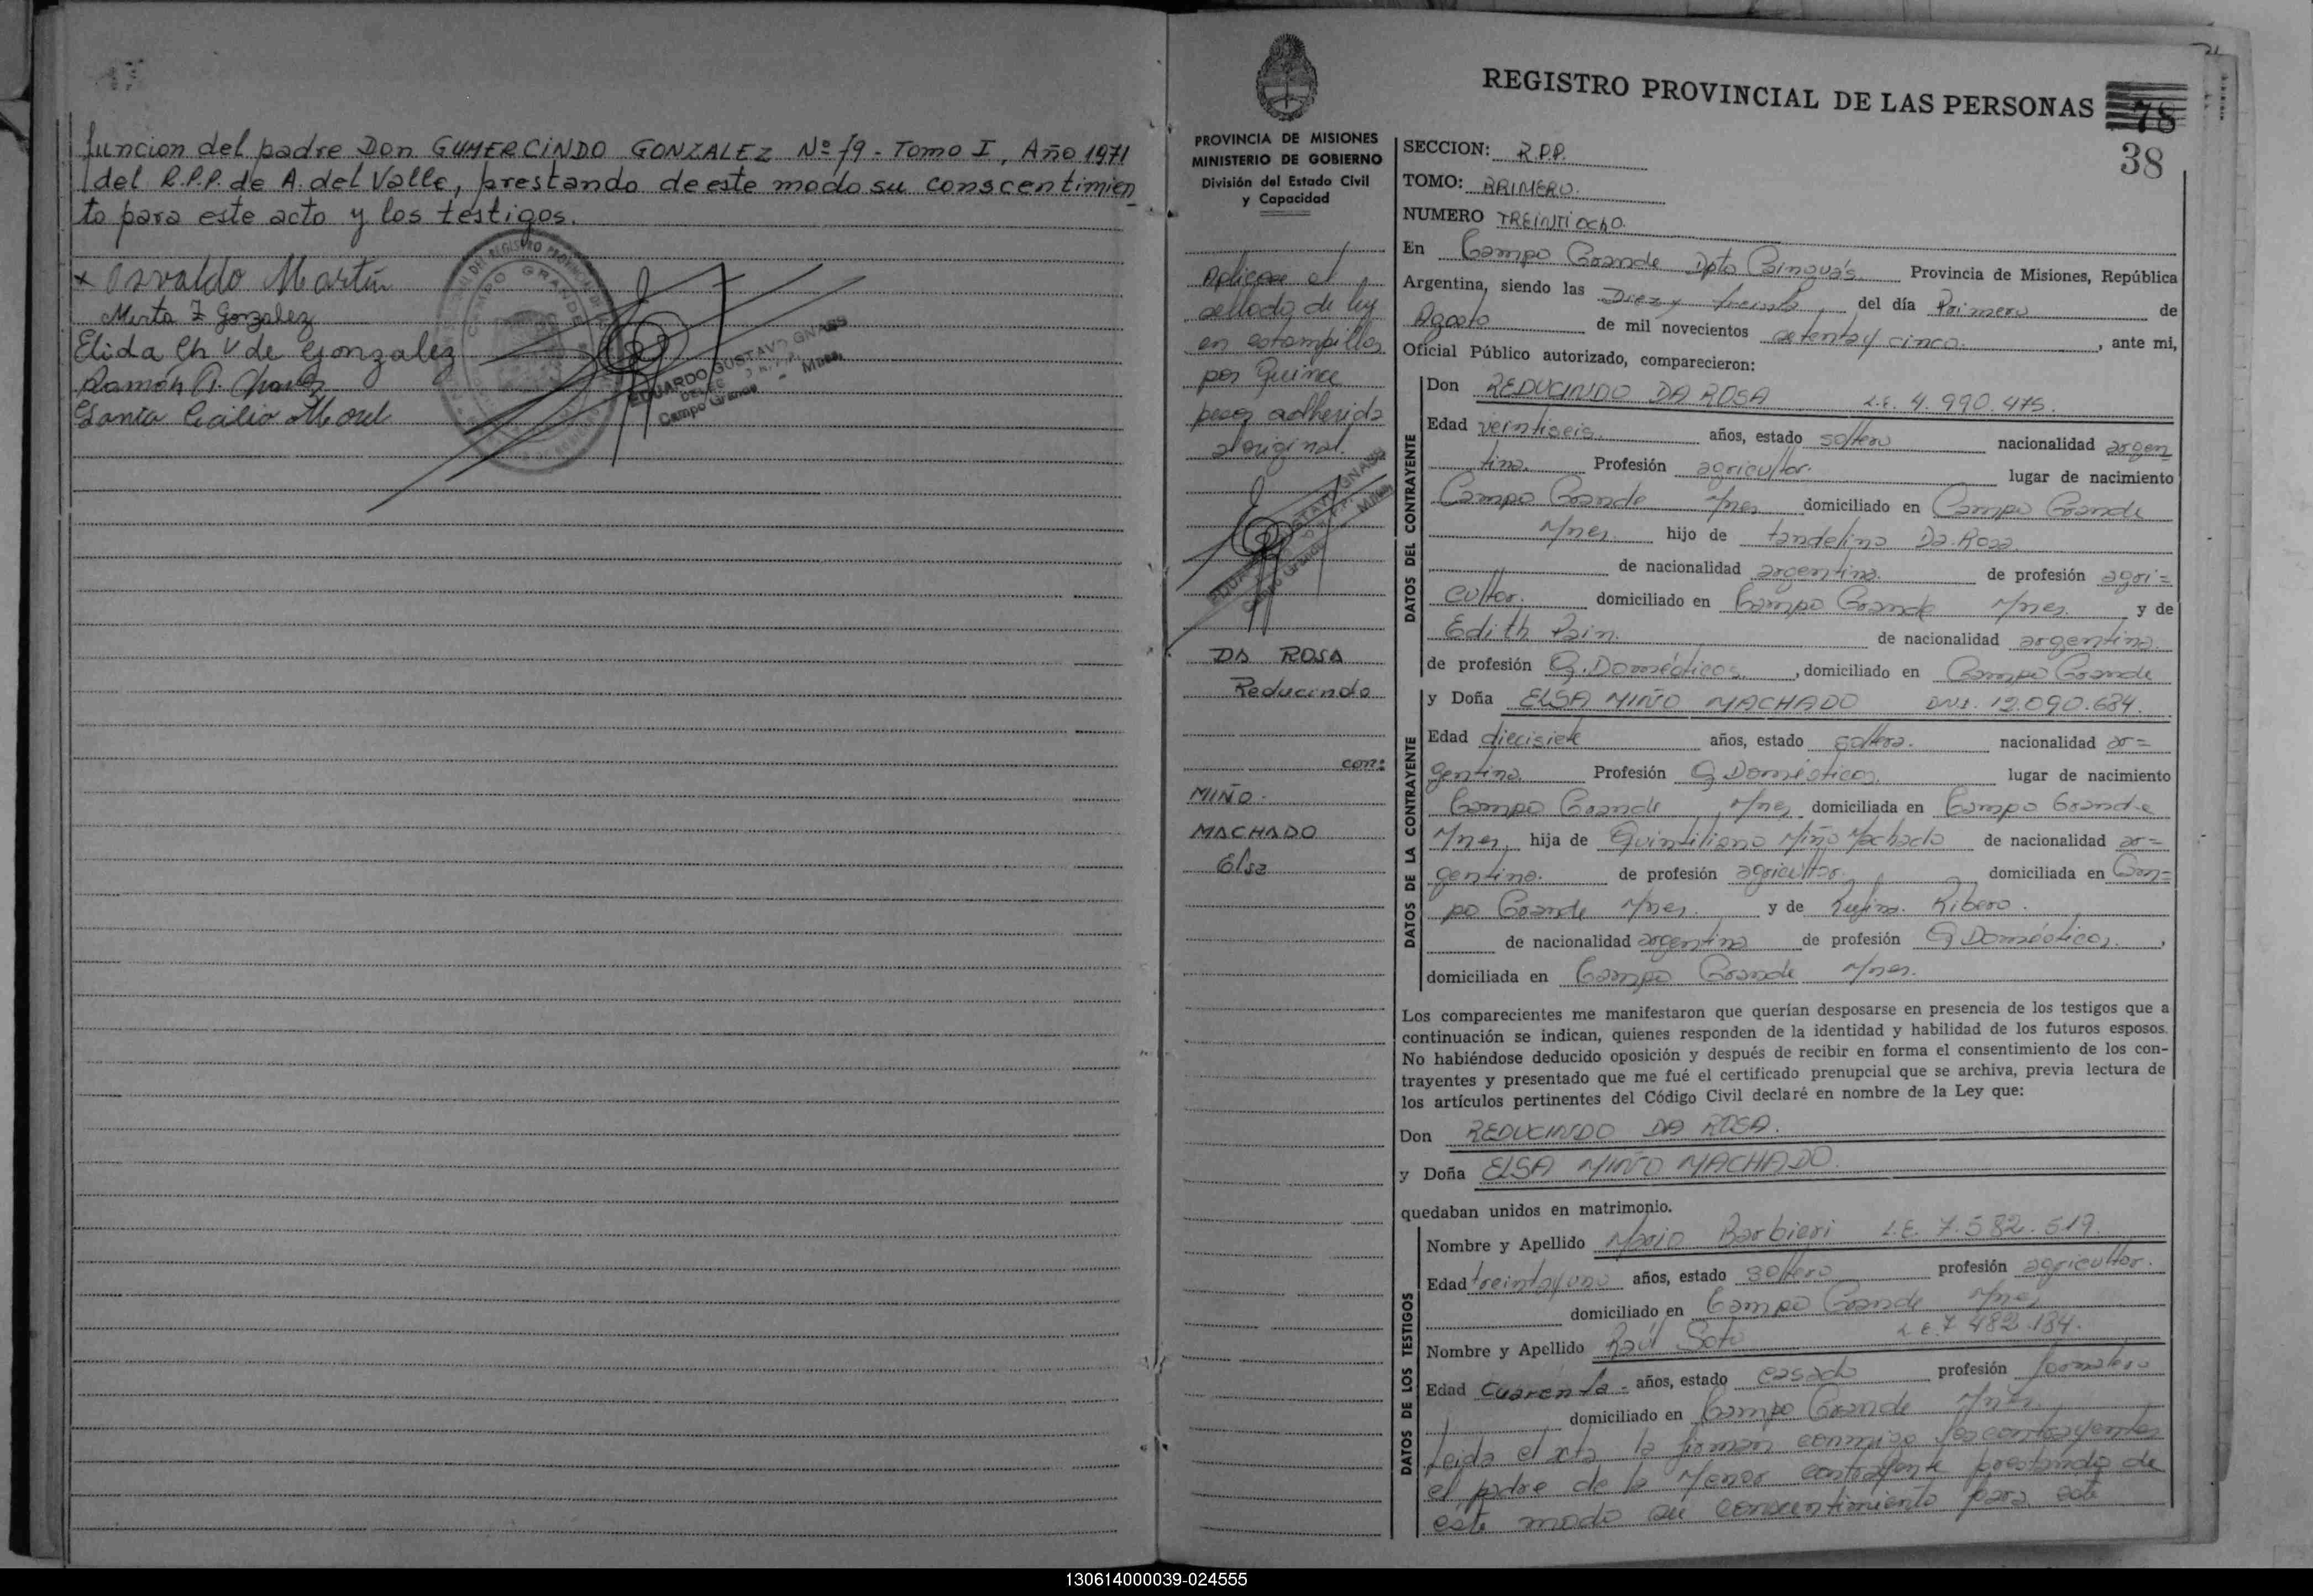 función del padre Don GUMERCINDO GONZALEZ Nº 19 - Tomo I, Año 1971
del R.P.P. de A. del Valle, prestando de este modo su conscentimien
to para este acto y los testigos.
x Osvaldo Martin
Mirta Z Gonzalez
Elida Ch V de Gonzalez
Ramón A. Chavez
Santa Cecilio Morel
CAMPO GRANDE
EDUARDO GUSTAVO GNASS
Campo Grande - Mnes.
REGISTRO PROVINCIAL DE LAS PERSONAS
78
38
PROVINCIA DE MISIONES
MINISTERIO DE GOBIERNO
División del Estado Civil
y Capacidad
Aplicose el
sellado de ley
en estampillas
por Quince
pesos adherida
al original.
DA ROSA
Reducindo
con:
MIÑO
MACHADO
Elsa
SECCION: R.P.P.
TOMO: PRIMERO.
NUMERO TREINTIOCHO.
En Campo Grande Dpto Cainguás. Provincia de Misiones, República
Argentina, siendo las Diez y treinta del día Primero de
Agosto de mil novecientos setenta y cinco. , ante mi,
Oficial Público autorizado, comparecieron:
DATOS DEL CONTRAYENTE
Don REDUCINDO DA ROSA L.E. 4.990.475.
Edad veintiseis. años, estado soltero nacionalidad argen
tina. Profesión agricultor. lugar de nacimiento
Campo Grande Mnes domiciliado en Campo Grande
Mnes. hijo de tandelino Da Rosa
de nacionalidad argentina. de profesión agri=
cultor. domiciliado en Campo Grande Mnes. y de
Edith Pain. de nacionalidad argentina.
de profesión Q. Domésticos , domiciliado en Campo Grande
DATOS DE LA CONTRAYENTE
y Doña ELSA MIÑO MACHADO DNI. 12.090.684.
Edad diecisiete años, estado soltera. nacionalidad ar=
gentina Profesión Q Domésticos lugar de nacimiento
Campo Grande Mnes domiciliada en Campo Grande
Mnes, hija de Quintiliano Miño Machado de nacionalidad ar=
gentino. de profesión agricultor. domiciliada en Cam=
po Grande Mnes. y de Rufina Ribero.
de nacionalidad argentina de profesión Q Domésticos. ,
domiciliada en Campo Grande Mnes.
Los comparecientes me manifestaron que querían desposarse en presencia de los testigos que a
continuación se indican, quienes responden de la identidad y habilidad de los futuros esposos.
No habiéndose deducido oposición y después de recibir en forma el consentimiento de los con-
trayentes y presentado que me fué el certificado prenupcial que se archiva, previa lectura de
los artículos pertinentes del Código Civil declaré en nombre de la Ley que:
Don REDUCINDO DA ROSA.
y Doña ELSA MIÑO MACHADO.
quedaban unidos en matrimonio.
DATOS DE LOS TESTIGOS
Nombre y Apellido Mario Barbieri L.E. 7.582.519.
Edad treinta y uno años, estado soltero profesión agricultor.
domiciliado en Campo Grande Mnes
Nombre y Apellido Raúl Soto L.E. 7.482.184.
Edad Cuarenta - años, estado casado profesión Jornalero
domiciliado en Campo Grande Mnes.
Leida el acta la firman conmigo los contrayentes
el padre de la Menor contrayente prestando de
este modo su consentimiento para este
130614000039-024555